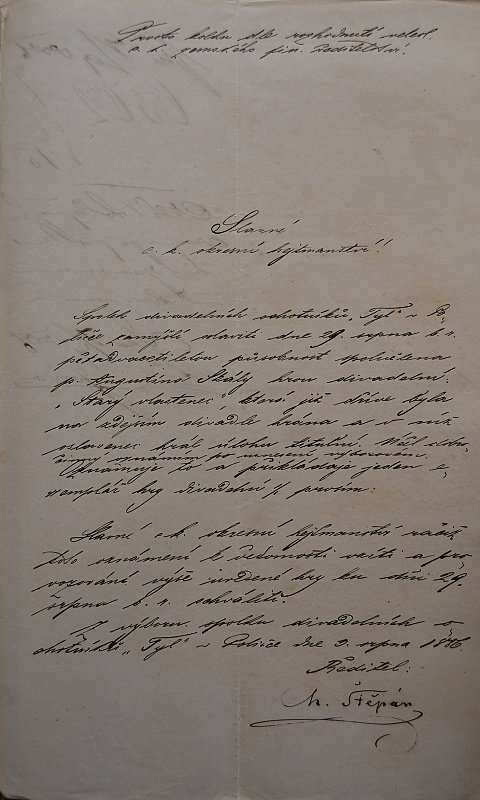 Prosto kolku dle rozhodnutí velesl.
c. k. zemského fin. ředitelství.
Slavné
c. k. okresní hejtmanství!
Spolek divadelních ochotníků „Tyl“ v Po-
lici zamýšlí slaviti dne 29. srpna t. r.
pětadvacetiletou působnost spolučlena
p. Augustina Škály hrou divadelní:
„Starý vlastenec“, která již dříve byla
na zdejším divadle hrána a v níž
oslavenec hrál úlohu titulní.
oznámím po usnesení výborovém.
Oznamuje to a přikládaje jeden e-
xemplář hry divadelní /. prosím:
Slavné c. k. okresní hejtmanství račiž
toto oznámení k vědomosti vzíti a pro-
vozování výše uvedené hry ku dni 29.
srpna t. r. schváliti.
Z výboru spolku divadelních o-
chotníků „Tyl“ v Polici dne 9. srpna 1886.
Ředitel:
Štěpán